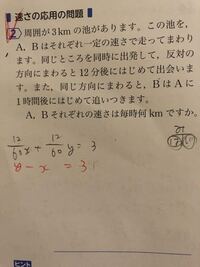 速さの応用の問題
2 周囲が3kmの池があります。この池を,
A, Bはそれぞれ一定の速さで走ってまわり
ます。同じところを同時に出発して, 反対の
方向にまわると12分後にはじめて出会いま
す。また, 同じ方向にまわると, BはAに
1時間後にはじめて追いつきます。
A, Bそれぞれの速さは毎時何kmですか。
12/60 x + 12/60 y = 3
y - x = 3
ヒント